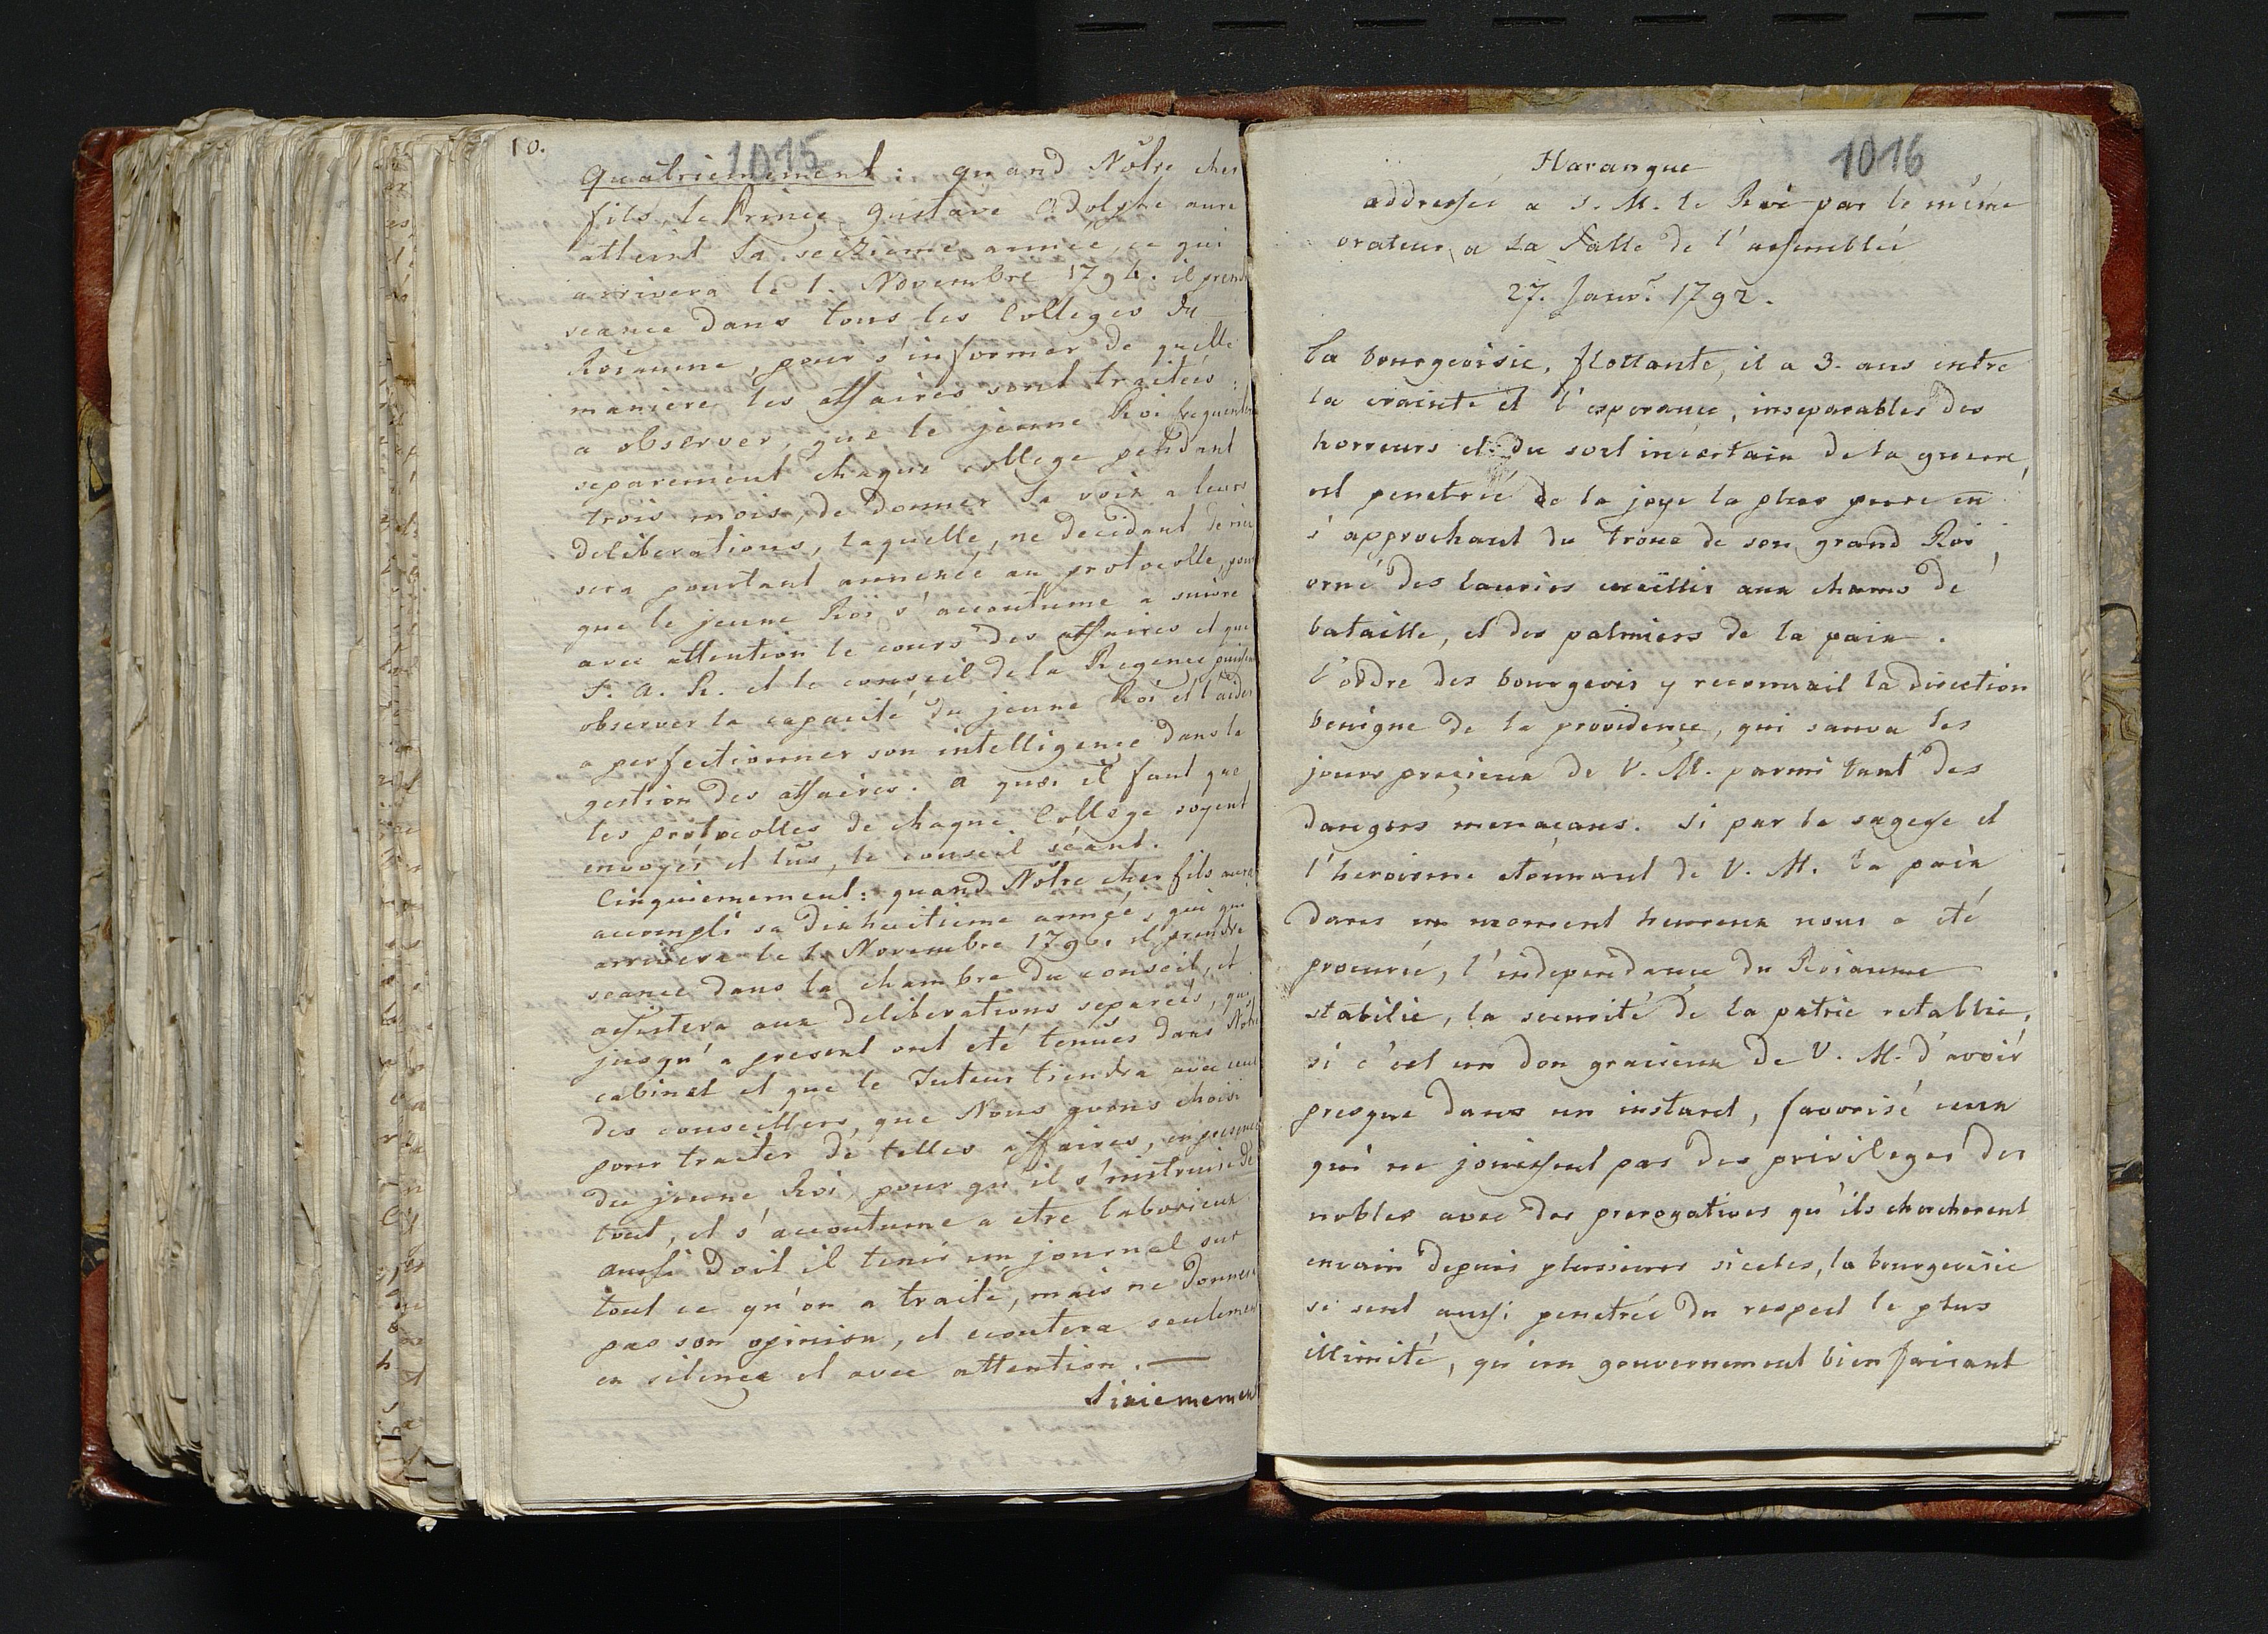 10.
1015
Quatriemement: quand Nôtre cher
fils le Prince Gustave Adolphe aura
atteint sa seizieme année, ce qui
arrivera le 1. Novembre 1794. il prend
seance dans tous les Colleges du
Roiaume, pour s'informer de quelle
maniere les affaires sont traiteés:
a observer, que le jeune Roi frequente
separement chaque college pendant
trois mois, de donner sa voix a leurs
deliberations, laquelle, ne decidant de rien
sera pourtant annexée au protocolle, pour
que le jeune Roi s'accoutume a suivre
avec attention le cours des affaires et que
S. A. R. et le conseil de la Regence puissent
observer la capacité du jeune Roi et l'aider
a perfectionner son intelligence dans la
gestion des affaires. a quoi il faut que
les protocolles de chaque College soyent
envoyés et lûs, le conseil séant.
Cinquiemement: quand Notre cher fils aura
accompli sa dixhuitieme année, qui qui
arrivera le 1. Novembre 1796. il prendra
seance dans la chambre du conseil, et
assistera aux deliberations separeés, qui
jusqu'a present ont eté tenues dans Notre
cabinet et que le Tuteur tiendra avec ceux
des conseillers, que Nous avons choisi
pour traiter de telles affaires, en presence
du jeune Roi, pour qu'il s'instruise de
tout, et s'accoutume a etre laborieux
aussi doit il tenir un journal sur
tout ce qu'on a traité, mais ne donnera
pas son opinion, et ecoutera seulement
en silence et avec attention. —
Sixiemement
1016
Harangue
addressée a S. M. le Roi par le même
orateur, a la Salle de l'assemblée
27. Janv. 1792.
La bourgeoisie, flottante, il a 3. ans entre
la crainte et l'esperance, inseparables des
horreurs et du sort incertain de la guerre,
est penetrée de la joye la plus pure en
s'approchant du trone de son grand Roi,
orné des lauriers cueïllis aux chams de
bataille, et des palmiers de la paix.
l'ordre des bourgeois y reconnait la direction
benigne de la providence, qui sauva les
jours precieux de V. M. parmi tant des
dangers menaçans. Si par la sagesse et
l'heroisme etonnant de V. M. la paix
dans un moment heureux nous a eté
procurée, l'independance du Roiaume
stabilie, la securité de la patrie retablie,
si c'est un don gracieux de V. M. d'avoir
presque dans un instant, favorisé ceux
qui ne jouissent pas des privileges des
nobles avec des prerogatives qu'ils chercherent
envain depuis plusieurs siecles, la bourgeoisie
se sent aussi penetrée du respect le plus
illimité, qu'un gouvernement bienfaisant